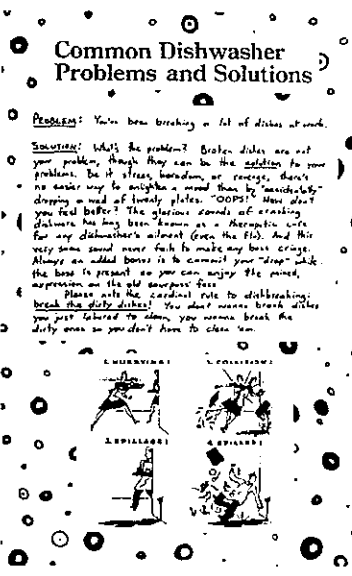 Common Dishwasher
Problems and Solutions
PROBLEM: You've been breaking a lot of dishes at work.
SOLUTION: What's the problem? Broken dishes are not
your problem, though they can be the solution to your
problems. Be it stress, boredom, or revenge, there's
no easier way to enlighten a mood than by "accidentally"
dropping a wad of twenty plates. "OOPS!" Now don't
you feel better? The glorious sounds of crashing
dishware has long been known as a theraputic cure
for any dishwasher's ailments (even the flu). And this
very same sound never fails to make any boss cringe.
Always an added bonus is to commit your "drop" while
the boss is present so you can enjoy the pained
expression on the old sourpuss' face.
Please note the cardinal rule to dishbreaking:
break the dirty dishes! You don't wanna break dishes
you just labored to clean, you wanna break the
dirty ones so you don't have to clean 'em.
1. HURRYING! 2. COLLISION!
3. SPILLAGE! 4.